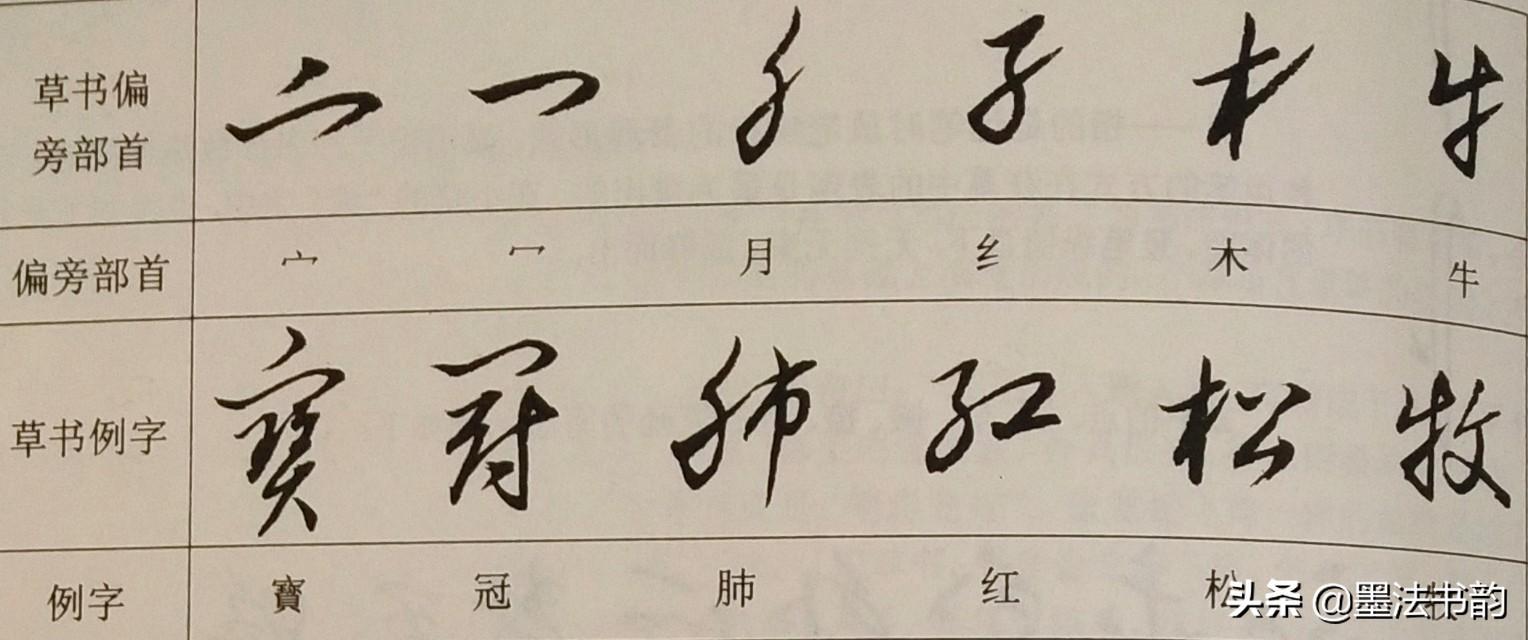 草书偏
旁部首
偏旁部首 宀 冖 月 纟 木 牛
草书例字 寳 冠 肺 红 松 牧
例字 寳 冠 肺 红 松
头条 @墨法书韵